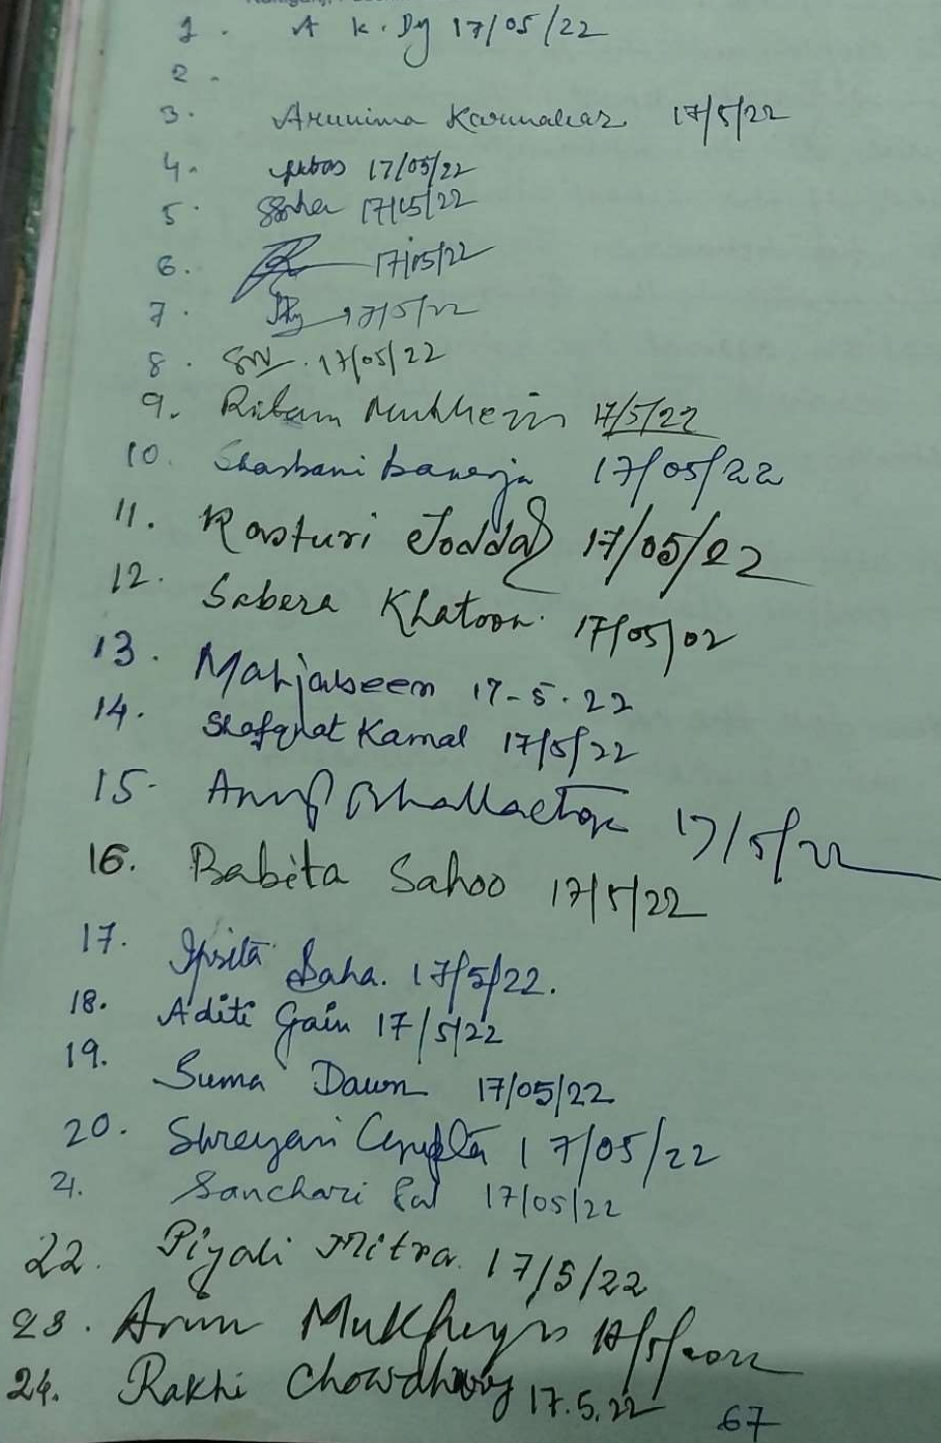 1. A K. Dy 17/05/22
2.
3. Arunima Karmakar 17/5/22
4. 17/05/22
5. 17/05/22
6. 17/05/22
7. 17/5/22
8. 17/05/22
9. Ritam Mukherjee 17/5/22
10. Sharbani Banerjee 17/05/22
11. Kasturi Joddar 17/05/22
12. Sabera Khatoon. 17/05/02
13. Mahjabeen 17-5-22
14. Shafqat Kamal 17/5/22
15. Anup Bhattacharya 17/5/22
16. Babita Sahoo 17/5/22
17. Ipsita Saha. 17/5/22.
18. Aditi Gain 17/5/22
19. Suma Dawn 17/05/22
20. Shreyasi Gupta 17/05/22
21. Sanchari Pal 17/05/22
22. Piyali Mitra. 17/5/22
23. Arun Mukherjee 17/5/2022
24. Rakhi Chowdhury 17.5.22
67